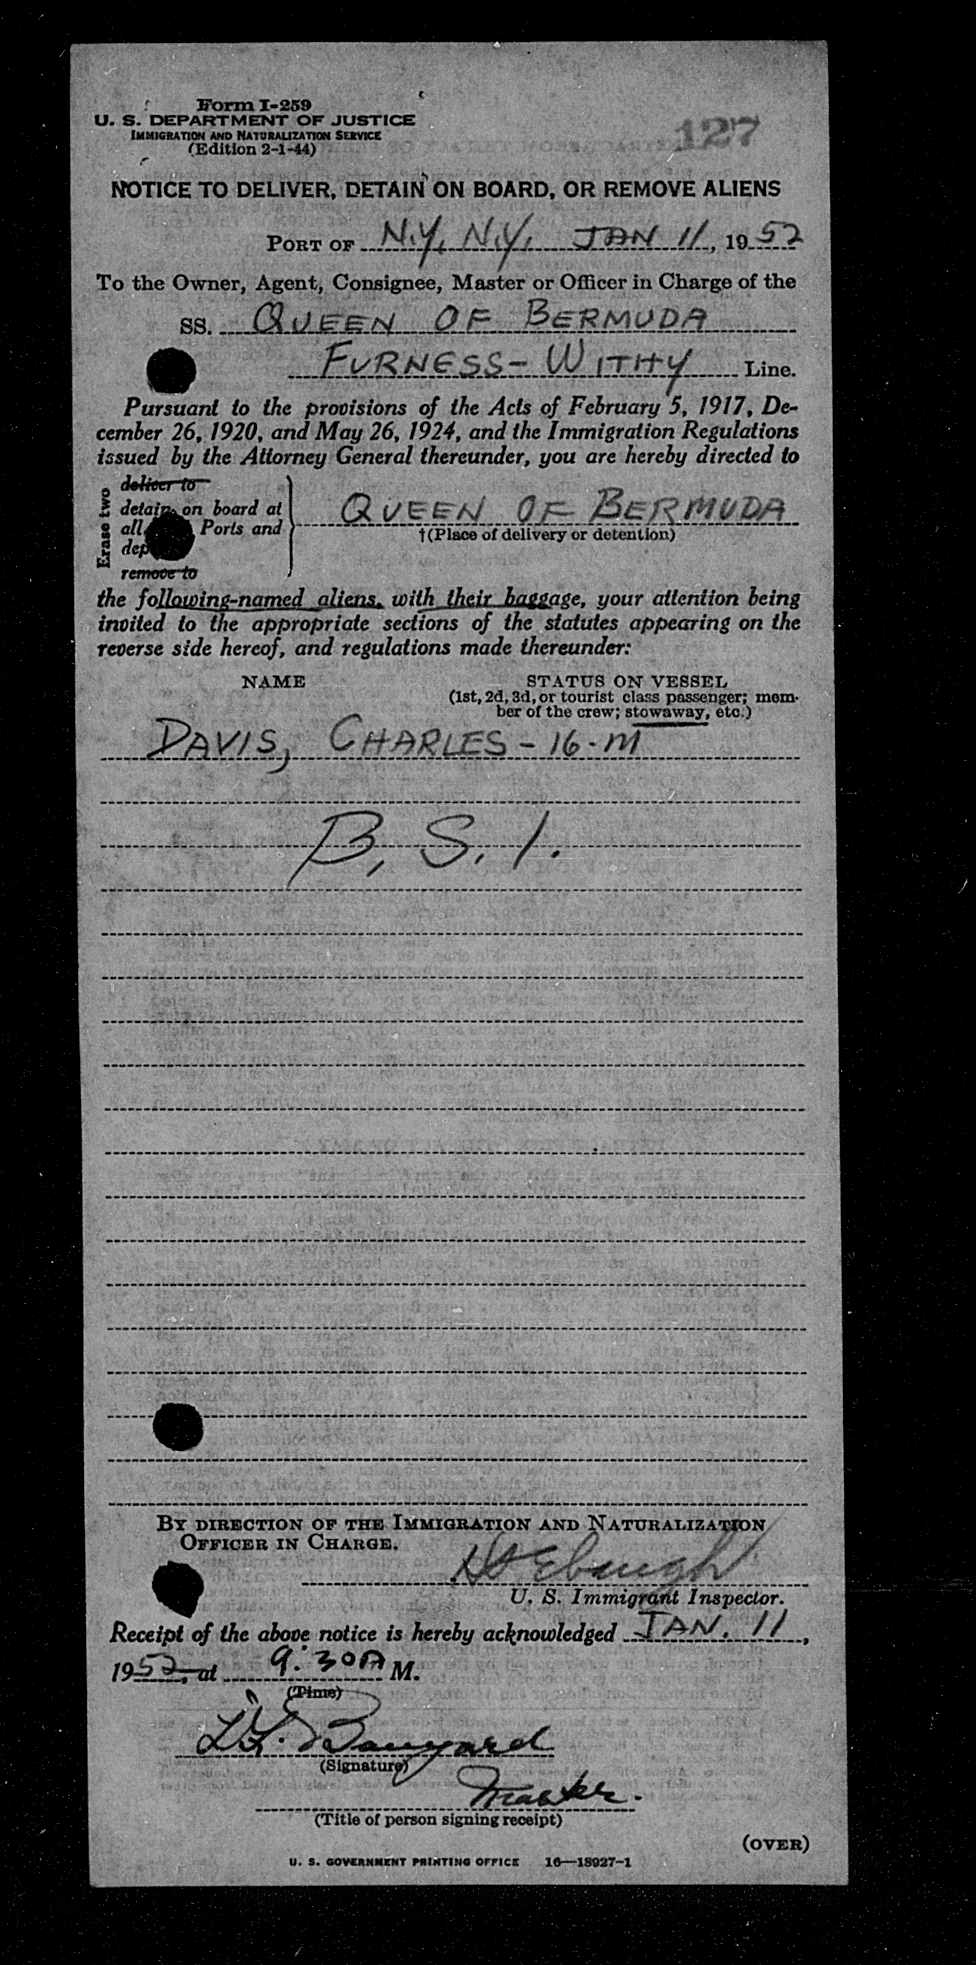 Form I-259
U. S. DEPARTMENT OF JUSTICE
IMMIGRATION AND NATURALIZATION SERVICE
(Edition 2-1-44)
127
NOTICE TO DELIVER, DETAIN ON BOARD, OR REMOVE ALIENS
PORT OF N.Y, N.Y. JAN 11, 1952
To the Owner, Agent, Consignee, Master or Officer in Charge of the
SS. QUEEN OF BERMUDA
FURNESS-WITHY Line.
Pursuant to the provisions of the Acts of February 5, 1917, De-
cember 26, 1920, and May 26, 1924, and the Immigration Regulations
issued by the Attorney General thereunder, you are hereby directed to
Erase two
deliver to
detain on board at
all Ports and
remove to
QUEEN OF BERMUDA
†(Place of delivery or detention)
the following-named aliens, with their baggage, your attention being
invited to the appropriate sections of the statutes appearing on the
reverse side hereof, and regulations made thereunder:
NAME STATUS ON VESSEL
(1st, 2d, 3d, or tourist class passenger; mem-
ber of the crew; stowaway, etc.)
DAVIS, CHARLES - 16-M
B. S. I.
BY DIRECTION OF THE IMMIGRATION AND NATURALIZATION
OFFICER IN CHARGE.
U. S. Immigrant Inspector.
Receipt of the above notice is hereby acknowledged JAN. 11,
1952, at 9:30A M.
(Time)
(Signature)
Master.
(Title of person signing receipt)
(OVER)
U. S. GOVERNMENT PRINTING OFFICE 16—18927-1